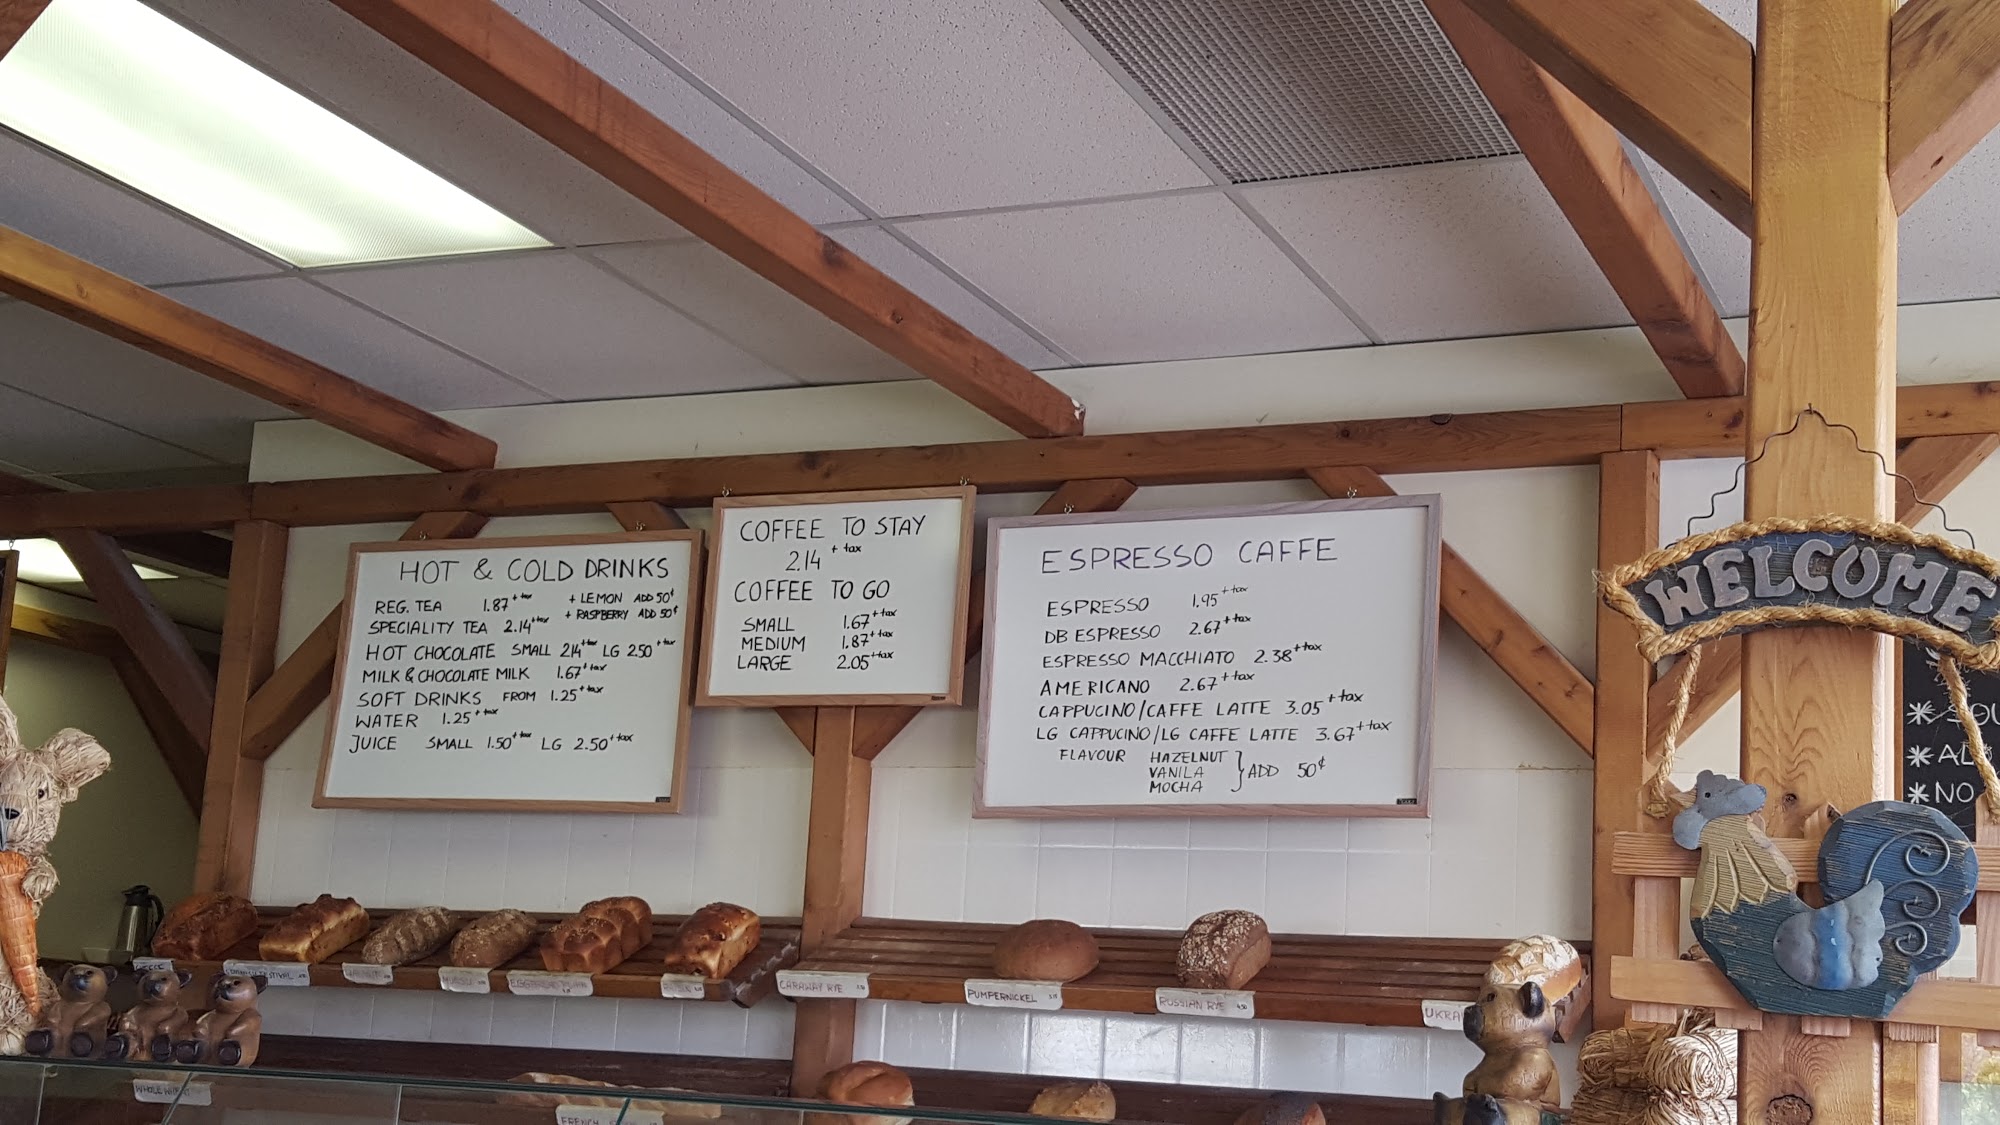 HOT & COLD DRINKS
REG. TEA 1.87 + tax + LEMON ADD 50¢
+ RASPBERRY ADD 50¢
SPECIALITY TEA 2.14 + tax
HOT CHOCOLATE SMALL 2.14 + tax LG 2.50 + tax
MILK & CHOCOLATE MILK 1.67 + tax
SOFT DRINKS FROM 1.25 + tax
WATER 1.25 + tax
JUICE SMALL 1.50 + tax LG 2.50 + tax
COFFEE TO STAY
2.14 + tax
COFFEE TO GO
SMALL 1.67 + tax
MEDIUM 1.87 + tax
LARGE 2.05 + tax
ESPRESSO CAFFE
ESPRESSO 1.95 + tax
DB ESPRESSO 2.67 + tax
ESPRESSO MACCHIATO 2.38 + tax
AMERICANO 2.67 + tax
CAPPUCINO/CAFFE LATTE 3.05 + tax
LG CAPPUCINO/LG CAFFE LATTE 3.67 + tax
FLAVOUR HAZELNUT
VANILA } ADD 50¢
MOCHA
WELCOME
* NO
CARAWAY RYE
PUMPERNICKEL
RUSSIAN RYE
UKRA
FRENCH